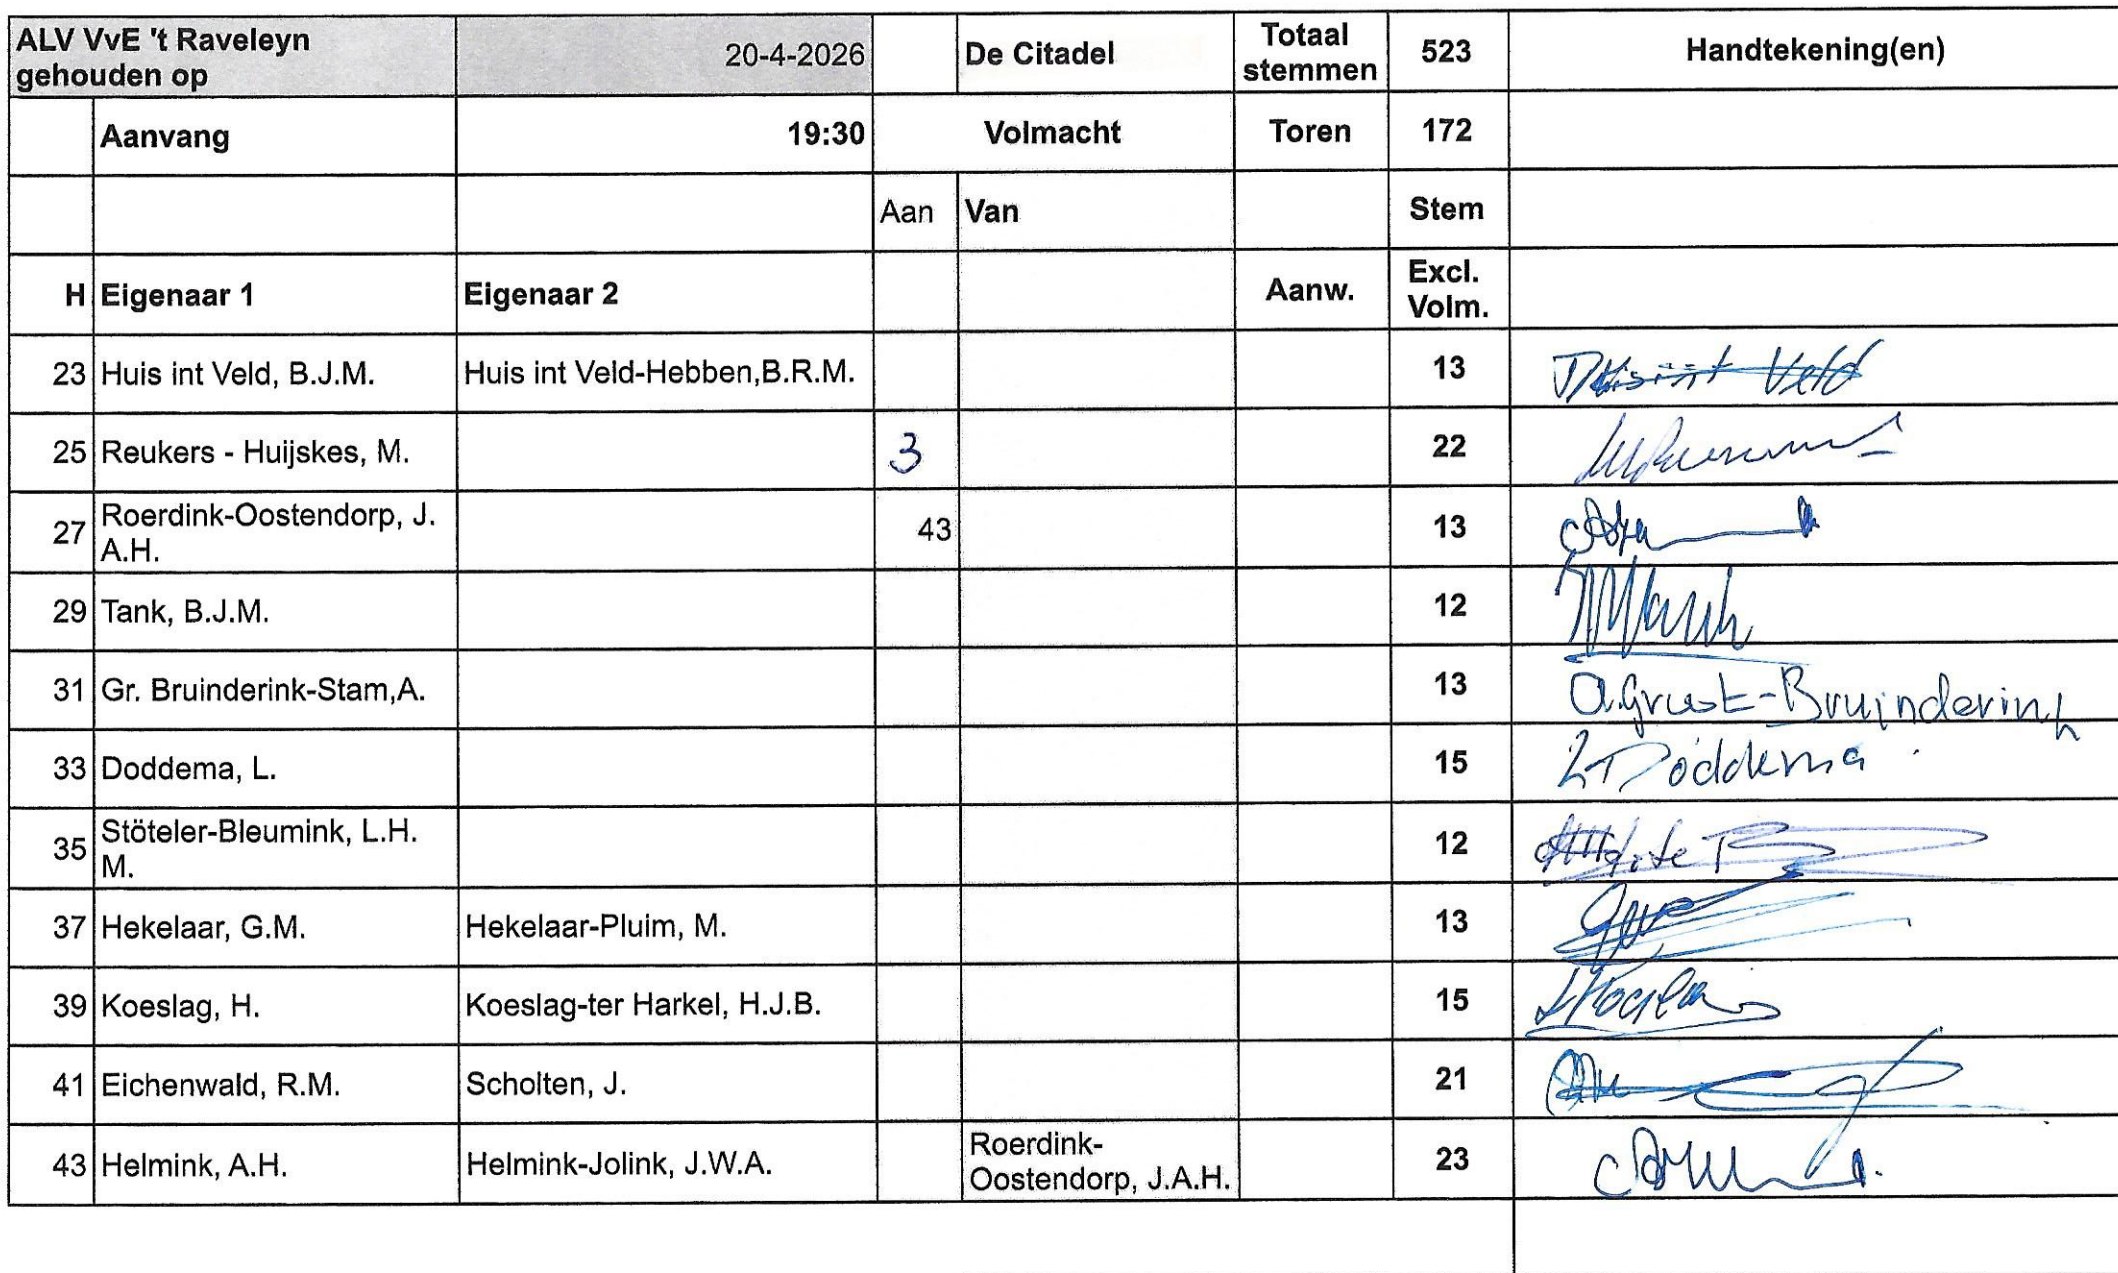 ALV VvE 't Raveleyn gehouden op 20-4-2026 De Citadel Totaal stemmen 523 Handtekening(en)
Aanvang 19:30 Volmacht Toren 172
Aan Van Stem
H Eigenaar 1 Eigenaar 2 Aanw. Excl. Volm.
23 Huis int Veld, B.J.M. Huis int Veld-Hebben,B.R.M. 13 Huis int Veld
25 Reukers - Huijskes, M. 3 22
27 Roerdink-Oostendorp, J. A.H. 43 13
29 Tank, B.J.M. 12
31 Gr. Bruinderink-Stam,A. 13 A. Groot-Bruinderink
33 Doddema, L. 15 L Doddema
35 Stöteler-Bleumink, L.H. M. 12
37 Hekelaar, G.M. Hekelaar-Pluim, M. 13
39 Koeslag, H. Koeslag-ter Harkel, H.J.B. 15
41 Eichenwald, R.M. Scholten, J. 21
43 Helmink, A.H. Helmink-Jolink, J.W.A. Roerdink-Oostendorp, J.A.H. 23